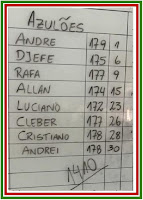 AZULÕES
ANDRE 179 1
DJEFE 175 6
RAFA 177 9
ALLAN 174 15
LUCIANO 172 23
CLEBER 177 26
CRISTIANO 178 28
ANDREI 178 30
1410